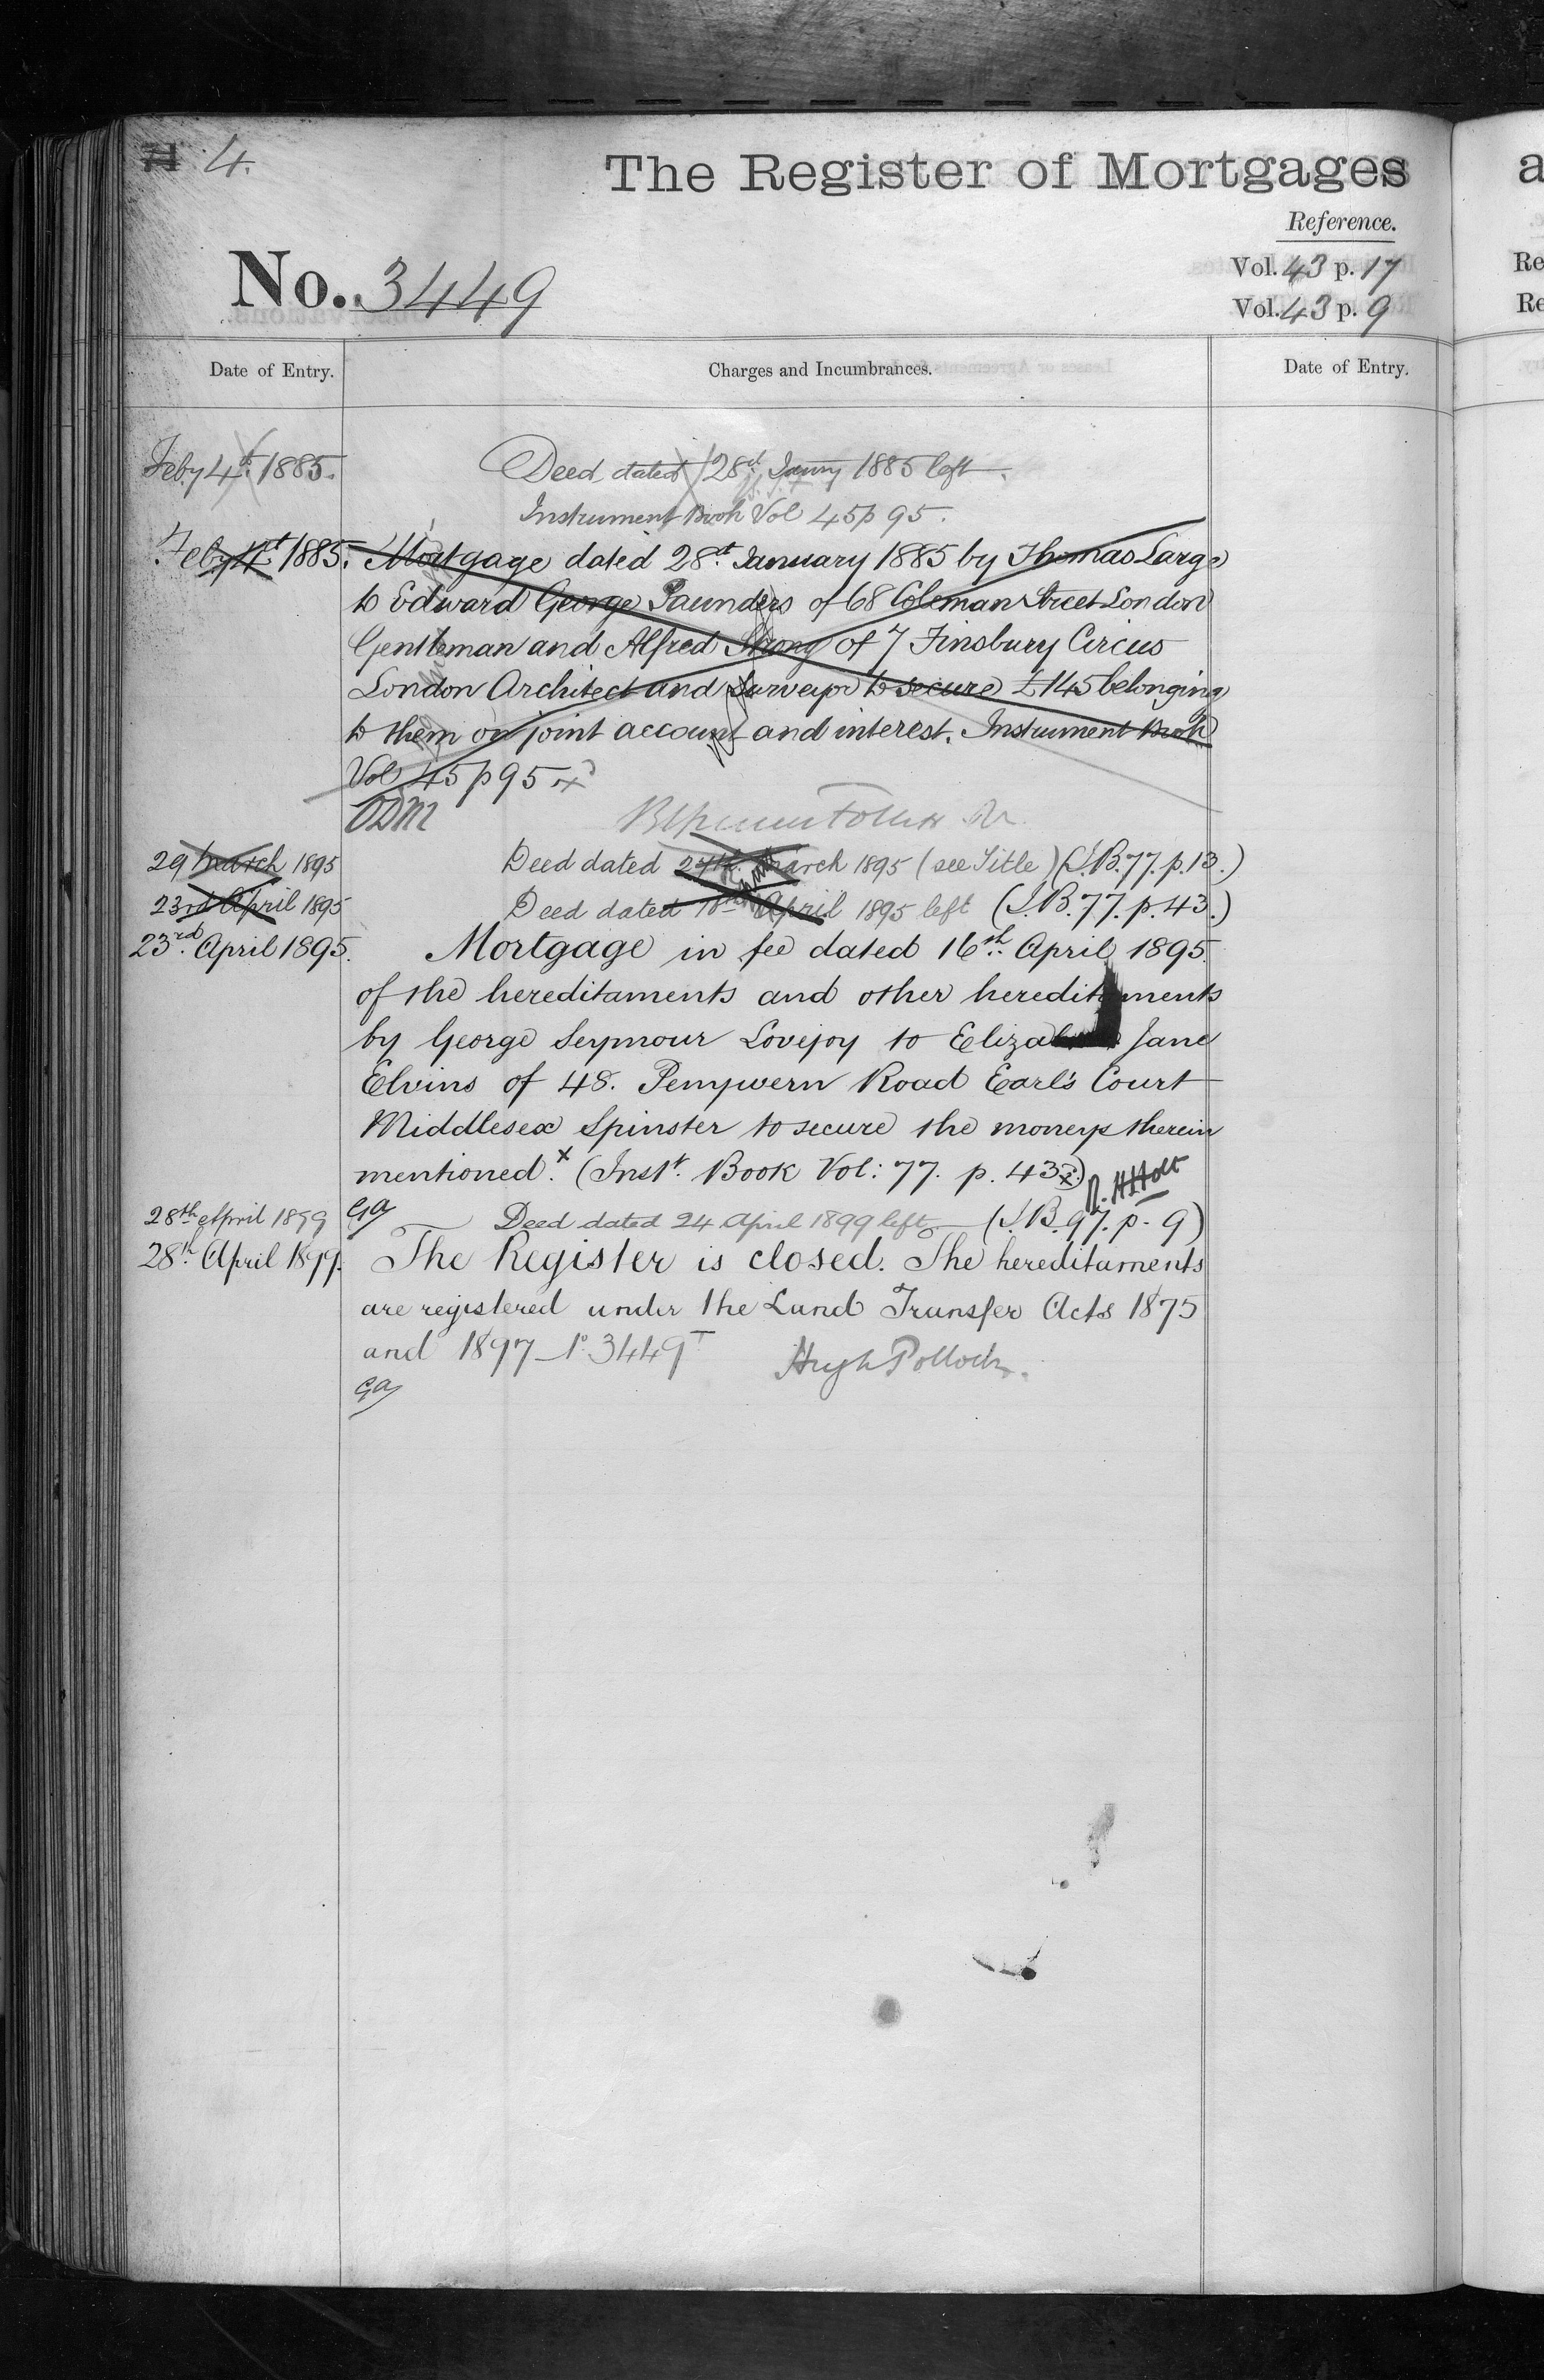 4.
The Register of Mortgages
Reference.
No. 3449
Vol. 43 p. 17
Vol. 43 p. 9
Date of Entry.
Charges and Incumbrances.
Date of Entry.
Feby 4th 1885.
Deed dated 28d Jany 1885 left
Instrument Book Vol 45 p 95.
Feby 4t 1885.
Mortgage dated 28t January 1885 by Thomas Large
to Edward George Saunders of 68 Coleman Street London
Gentleman and Alfred Strong of 7 Finsbury Circus
London Architect and Surveyor to secure £145 belonging
to them on joint account and interest. Instrument Book
Vol 45 p 95 x
ODM
29 March 1895
Deed dated 27th March 1895 (see Title) (I.B. 77. p. 13.)
23rd April 1895
Deed dated April 1895 left (I.B. 77. p. 43.)
23rd April 1895.
Mortgage in fee dated 16th April 1895
of the hereditaments and other hereditaments
by George Seymour Lovejoy to Elizabeth Jane
Elvins of 48. Penywern Road Earl's Court
Middlesex Spinster to secure the moneys therein
mentioned. x (Instt. Book Vol: 77. p. 43 x)
R. H Holt
GA
28th April 1899
Deed dated 24 April 1899 left (I.B. 97. p. 9)
28th April 1899.
The Register is closed. The hereditaments
are registered under the Land Transfer Acts 1875
and 1897 No 3449T
Hugh Pollock.
GA
a
Re
Re